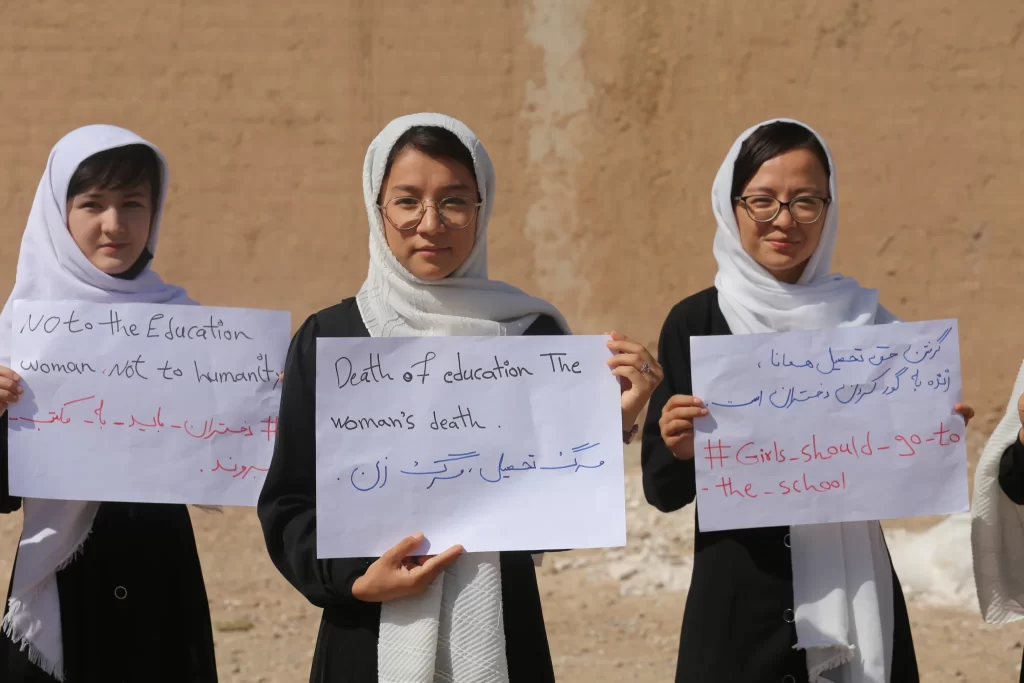 NOto the Education
woman, Not to humanity
# دختران_باید_با_مکتب
بروند.
Death of education The
woman's death.
مرگ تحصیل، مرگ زن.
گرفتن حق تحصیل همانا،
زنده به گور کردن دختران است.
#Girls_should_go_to
-the_school